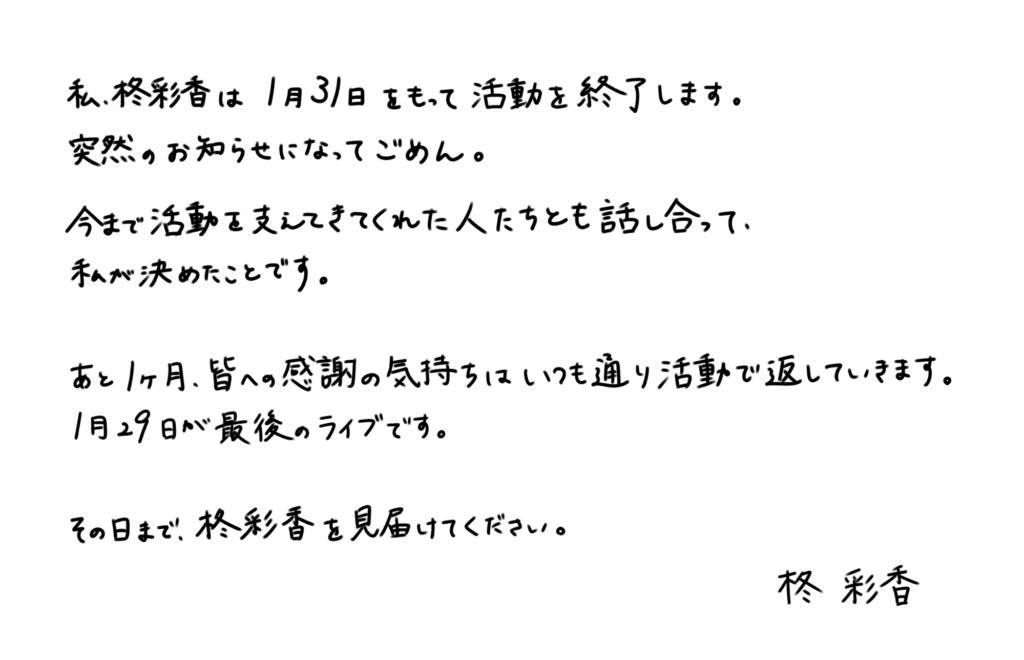 私、柊彩香は 1月31日 をもって 活動を終了します。
突然のお知らせになってごめん。
今まで活動を支えてきてくれた人たちとも話し合って、
私が決めたことです。
あと1ヶ月、皆への感謝の気持ちはいつも通り活動で返していきます。
1月29日が最後のライブです。
その日まで、柊彩香を見届けてください。
柊 彩香